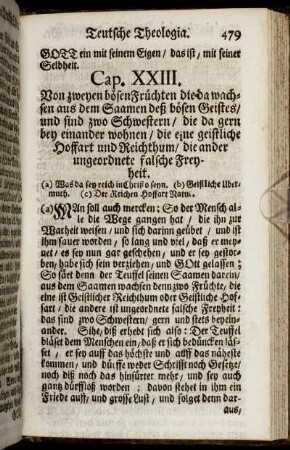 Teutsche Theologia. 479
GOTT ein mit seinem Eigen / das ist / mit seiner
Selbheit.
Cap. XXIII.
Von zweyen bösen Früchten die da wach-
sen aus dem Saamen deß bösen Geistes /
und sind zwo Schwestern / die da gern
bey einander wohnen / die eine geistliche
Hoffart und Reichthum / die ander
ungeordnete falsche Frey-
heit.
(a) Was da sey reich in Christo seyn. (b) Geistliche Uber-
muth. (c) Der Reichen Hoffart Natur.
(a) MAn soll auch mercken: So der Mensch al-
le die Wege gangen hat / die ihn zur
Warheit weisen / und sich darinn geübet / und ist
ihm sauer worden / so lang und viel / daß er mey-
net / es sey nun gar geschehen / und er sey gestor-
ben / habe sich sein verziehen / und GOtt gelassen;
So säet denn der Teuffel seinen Saamen darein /
aus dem Saamen wachsen denn zwo Früchte / die
eine ist Geistlicher Reichthum oder Geistliche Hof-
fart / die andere ist ungeordnete falsche Freyheit:
das sind zwo Schwestern / gern und stets beyein-
ander. Sihe / diß erhebt sich also: Der Teuffel
bläset dem Menschen ein / daß er sich bedüncken läs-
set / er sey auff das höchste und auff das näheste
kommen / und dürffe weder Schrifft noch Gesetze /
noch diß noch das hinfürter mehr / und sey auch
gantz dürffloß worden: davon stehet in ihm ein
Friede auff / und grosse Lust / und folget denn dar-
aus /